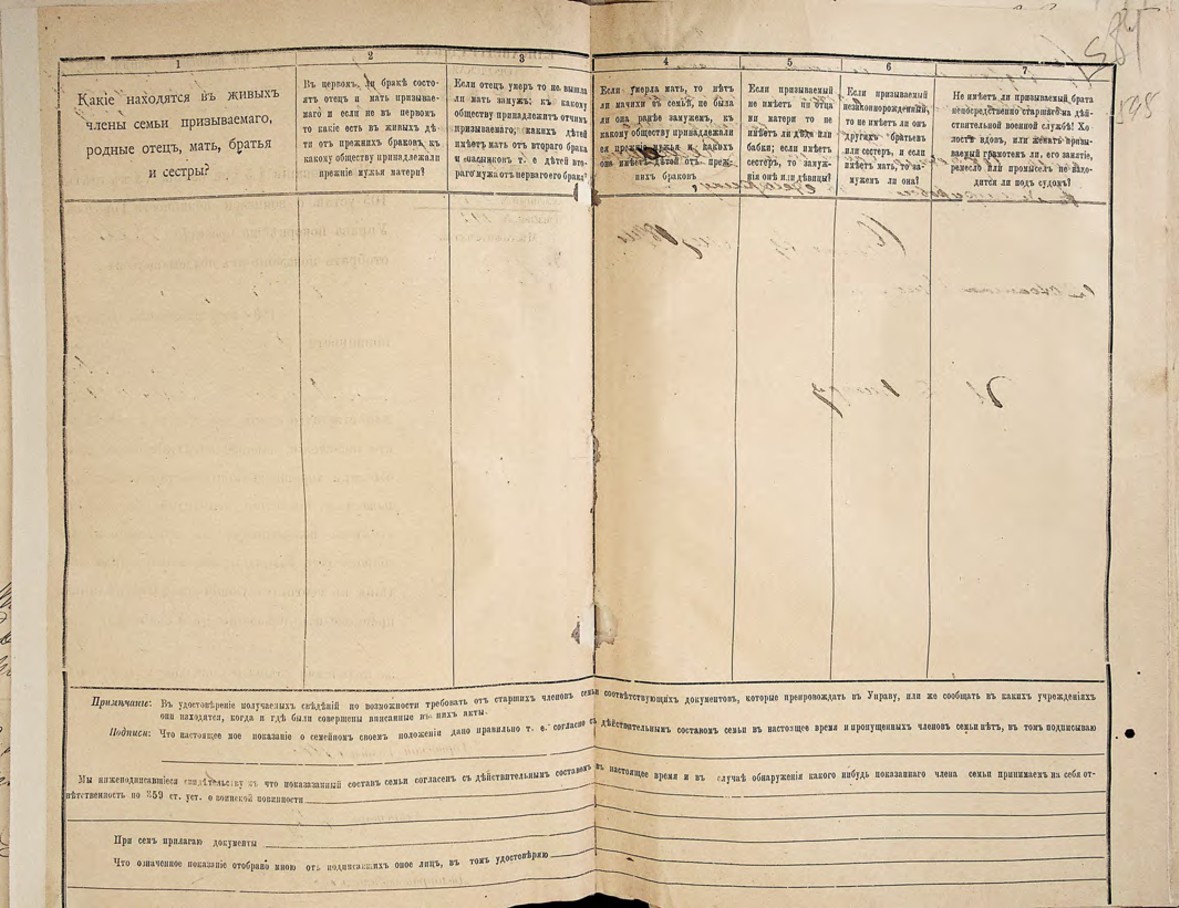 587
595
1
Какіе находятся въ живыхъ
члены семьи призываемаго,
родные отецъ, мать, братья
и сестры?
2
Въ первомъ ли бракѣ состо-
ятъ отецъ и мать призывае-
маго и если не въ первомъ
то какіе есть въ живыхъ дѣ-
ти отъ прежнихъ браковъ къ
какому обществу принадлежали
прежніе мужья матери?
3
Если отецъ умеръ то не вышла
ли мать замужъ: къ какому
обществу принадлежитъ отчимъ
призываемаго, какихъ дѣтей
имѣетъ мать отъ втораго брака
и пасынковъ т. е дѣтей вто-
раго мужа отъ перваго его брака?
4
Если умерла мать, то нѣтъ
ли мачихи въ семьѣ, не была
ли она ранѣе замужемъ, къ
какому обществу принадлежали
ея прежніе мужья и какихъ
она имѣетъ дѣтей отъ преж-
нихъ браковъ
5
Если призываемый
не имѣетъ ни отца
ни матери то не
имѣетъ ли дѣда или
бабки; если имѣетъ
сестеръ, то замуж-
нія онѣ или дѣвицы?
6
Если призываемый
незаконнорожденный,
то не имѣетъ ли онъ
другихъ братьевъ
или сестеръ, и если
имѣетъ мать, то за-
мужемъ ли она?
7
Не имѣетъ ли призываемый брата
непосредственно старшаго на дѣй-
ствительной военной службѣ! Хо
лостъ вдовъ, или женатъ призы-
ваемый грамотенъ ли, его занятіе,
ремесло или промыселъ не нахо-
дится ли подъ судомъ?
Примѣчаніе: Въ удостовѣреніе получаемыхъ свѣдѣній по возможности требовать отъ старшихъ членовъ семьи соотвѣтствующихъ документовъ, которые препровождать въ Управу, или же сообщать въ какихъ учрежденіяхъ
они находятся, когда и гдѣ были совершены вписанные въ нихъ акты.
Подписи: Что настоящее мое показаніе о семейномъ своемъ положеніи дано правильно т. е. согласно съ дѣйствительнымъ составомъ семьи въ настоящее время и пропущенныхъ членовъ семьи нѣтъ, въ томъ подписываю
Мы нижеподписавшіеся свидѣтельствуемъ что показазанный составъ семьи согласенъ съ дѣйствительнымъ составомъ въ настоящее время и въ случаѣ обнаруженія какого нибудь показаннаго члена семьи принимаемъ на себя от-
вѣтственность по 359 ст. уст. о воинской повинности
При семъ прилагаю документы
Что означенное показаніе отобрано мною отъ подписавшихъ оное лицъ, въ томъ удостовѣряю